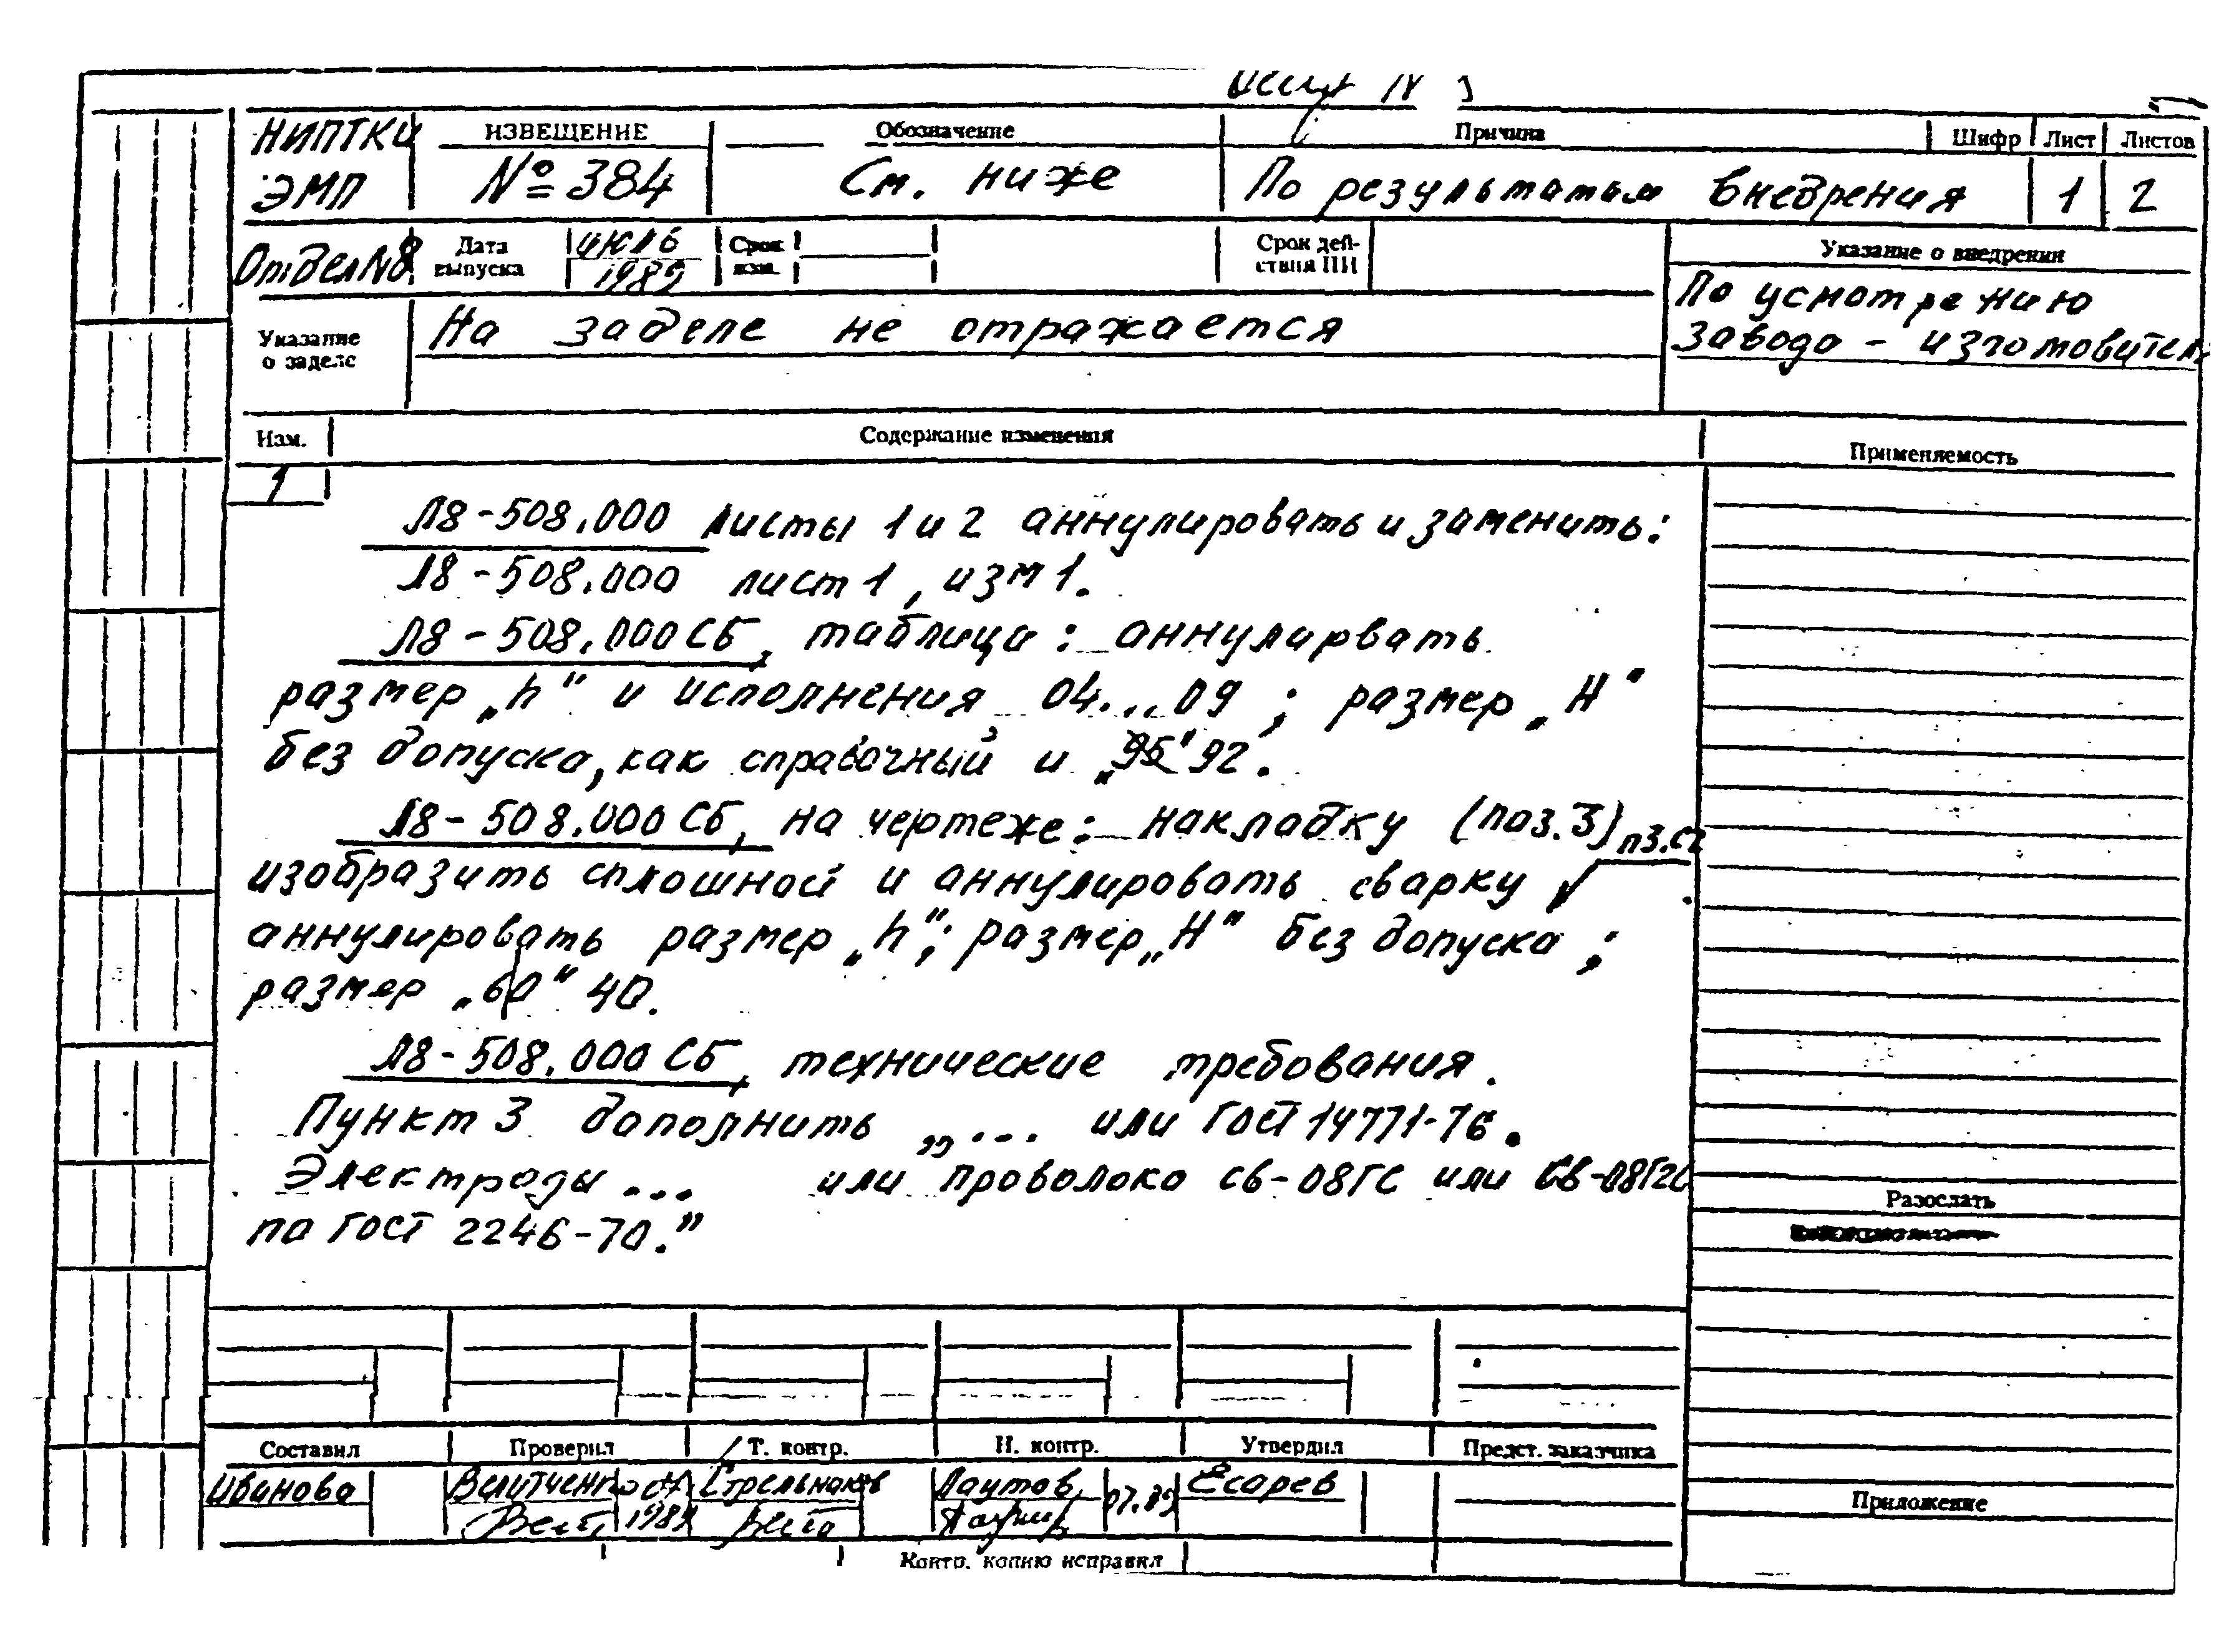 НИПТКИ ИЗВЕЩЕНИЕ Обозначение Причина Шифр Лист Листов
ЭМП №384 См. ниже По результатам внедрения 1 2
Отдел №8 Дата выпуска июль 1989 Срок изм. Срок действия ПИ Указание о внедрении
По усмотрению
завода - изготовител
Указание о заделе На заделе не отражается
Изм. Содержание изменения Применяемость
1
Л8-508.000 листы 1 и 2 аннулировать и заменить:
Л8-508.000 лист 1, изм 1.
Л8-508.000 СБ, таблица: аннулирвать
размер „h" и исполнения 04...09 ; размер „H"
без допуска, как справочный и „95" 92.
Л8-508.000 СБ, на чертеже: накладку (поз. 3) п3.с2
изобразить сплошной и аннулировать сварку
аннулировать размер „h"; размер „H" без допуска ;
размер „60" 40.
Л8-508.000 СБ, технические требования.
Пункт 3 дополнить „... или ГОСТ 14771-76.
Электроды ... или проволока Св-08ГС или Св-08Г2С
по ГОСТ 2246-70."
Разослать
Составил Проверил Т. контр. Н. контр. Утвердил Предст. заказчика
Иванова Лаутов 07.89 Есарев
1989
Приложение
Контр. копию исправил